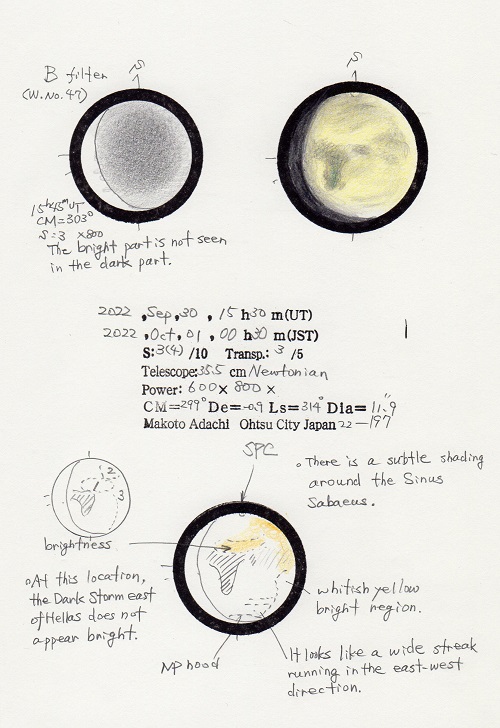 S
B filter
(W.No.47)
S
15h45m UT
CM=303°
S=3 ×800
The bright part is not seen
in the dark part.
2022 ,Sep,30 , 15 h30 m(UT)
2022 ,Oct,01 ,00 h30 m(JST)
S:3(4)/10 Transp.: 3 /5
Telescope:35.5 cm Newtonian
Power: 600× 800×
CM=299° De=-0.9 Ls=314° Dia= 11.9"
Makoto Adachi Ohtsu City Japan 22-197
SPC
There is a subtle shading
around the Sinus
Sabaeus.
2
1
3
brightness
At this location,
the Dark Storm east
of Hellas does not
appear bright.
whitish yellow
bright region.
NP hood
It looks like a wide streak
running in the east-west
direction.